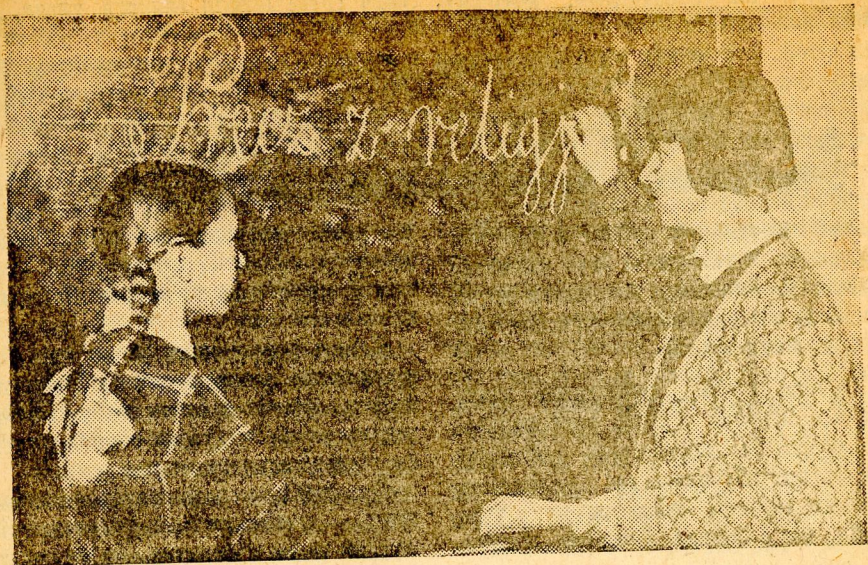 Precz z religj